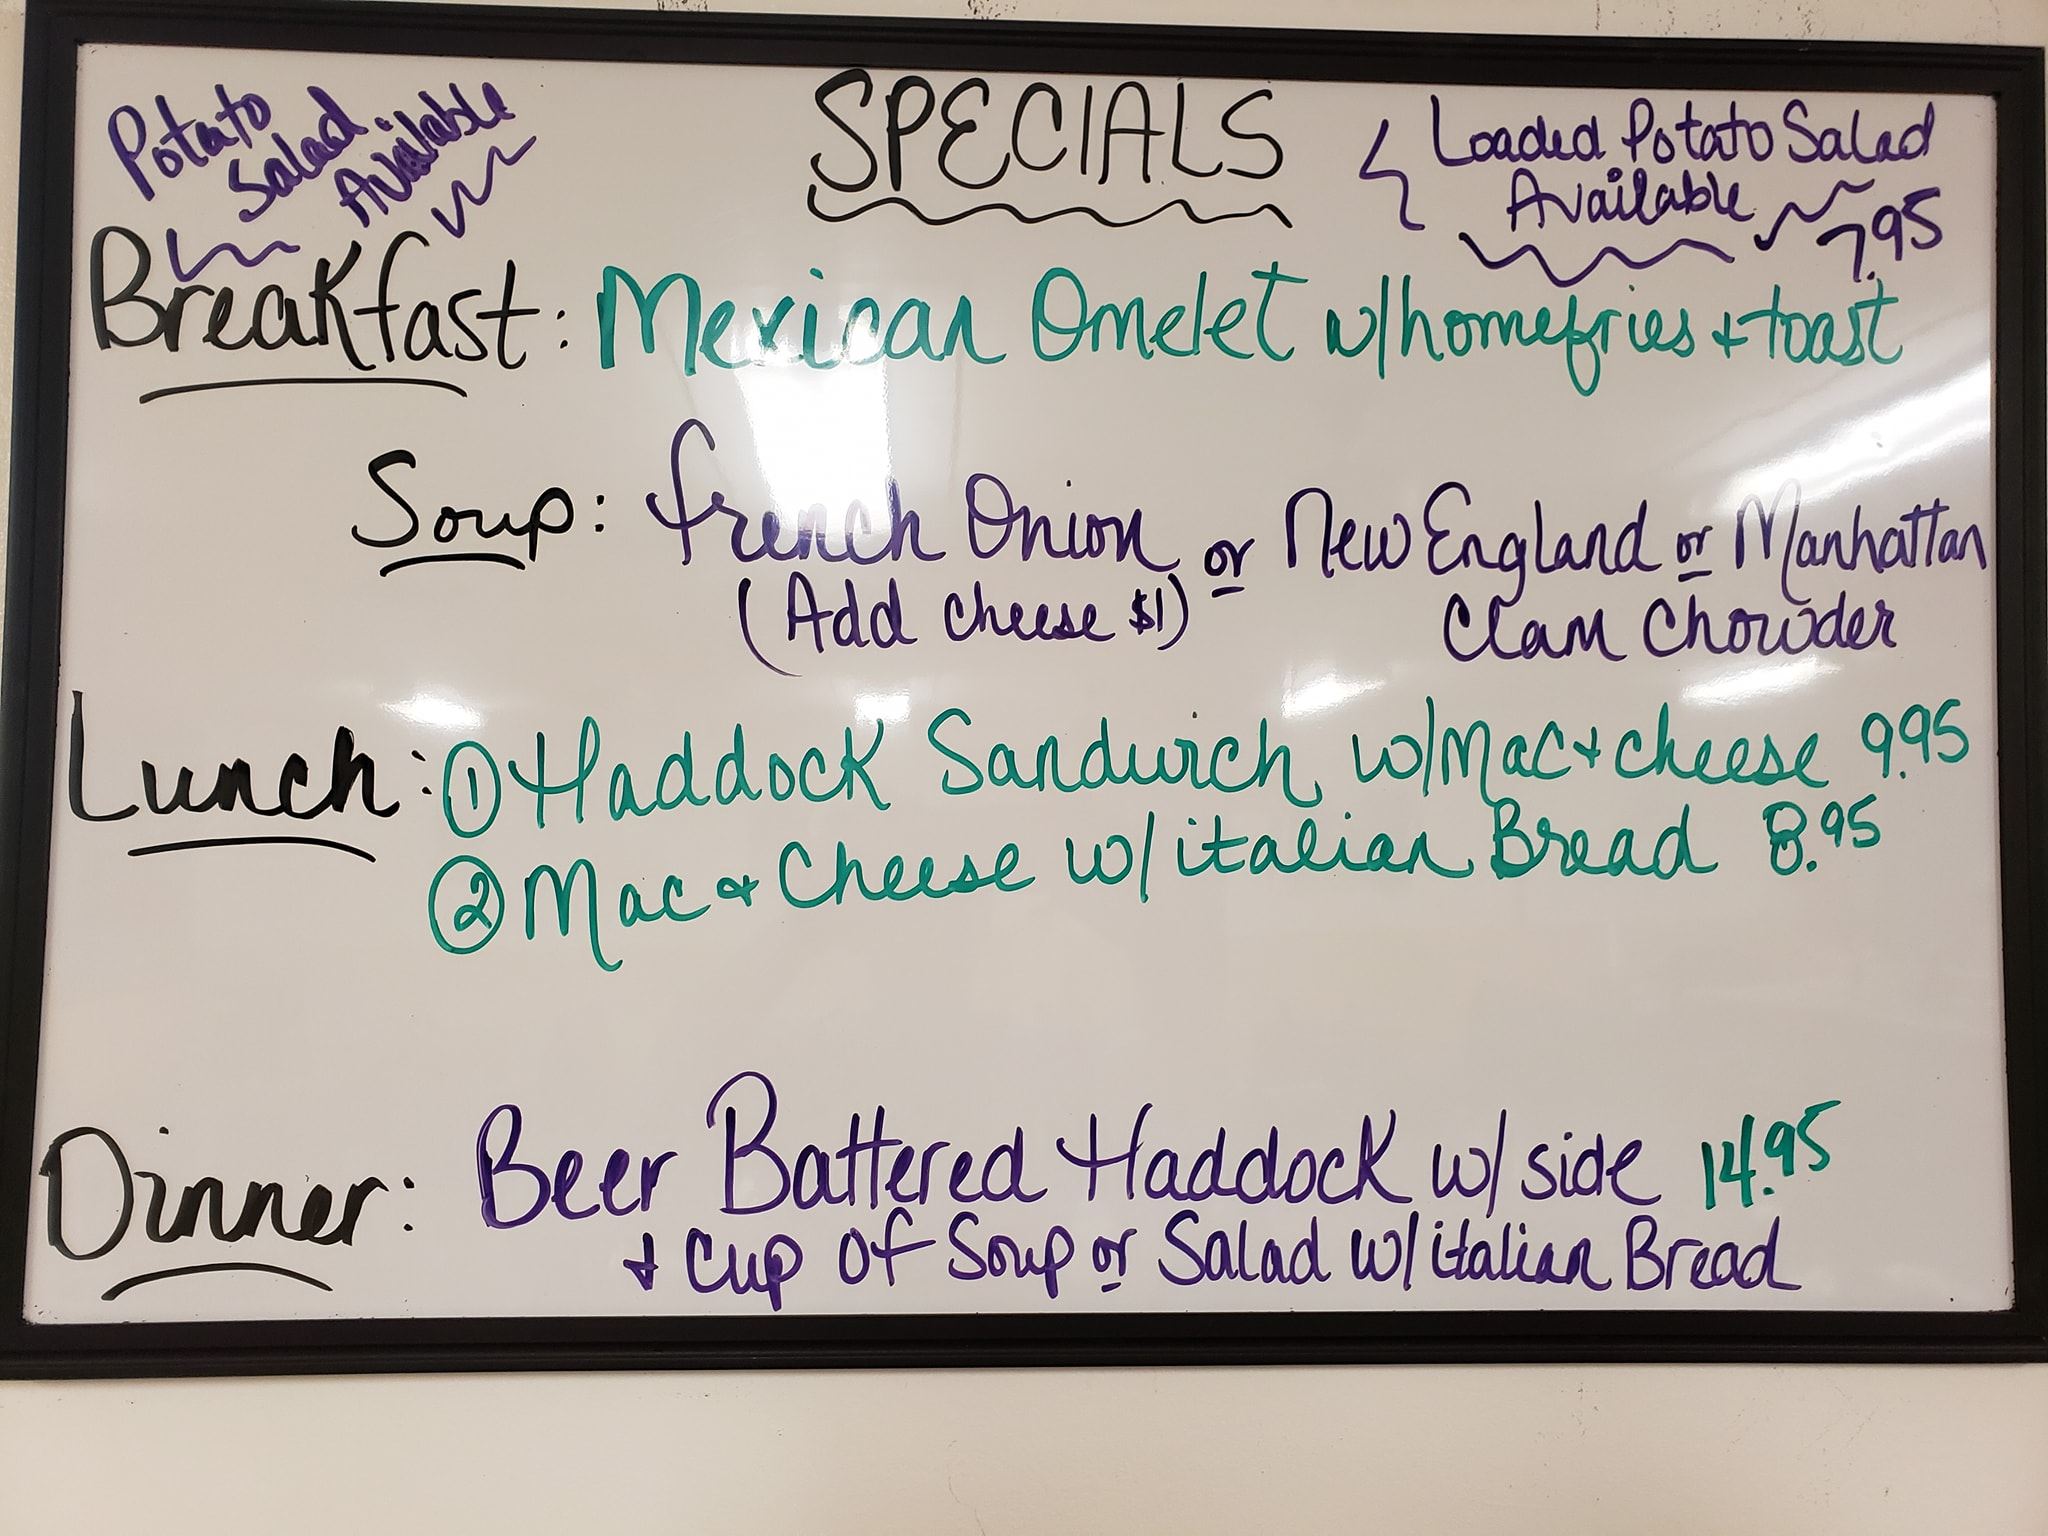 Potato
Salad
Available
SPECIALS
Loaded Potato Salad
Available
7.95
Breakfast: Mexican Omelet w/homefries + toast
Soup: French Onion or New England or Manhattan
(Add cheese $1)
Clam Chowder
Lunch: ① Haddock Sandwich w/Mac + cheese 9.95
② Mac + Cheese w/ italian Bread 8.95
Dinner: Beer Battered Haddock w/ side 14.95
+ cup of Soup or Salad w/ italian Bread